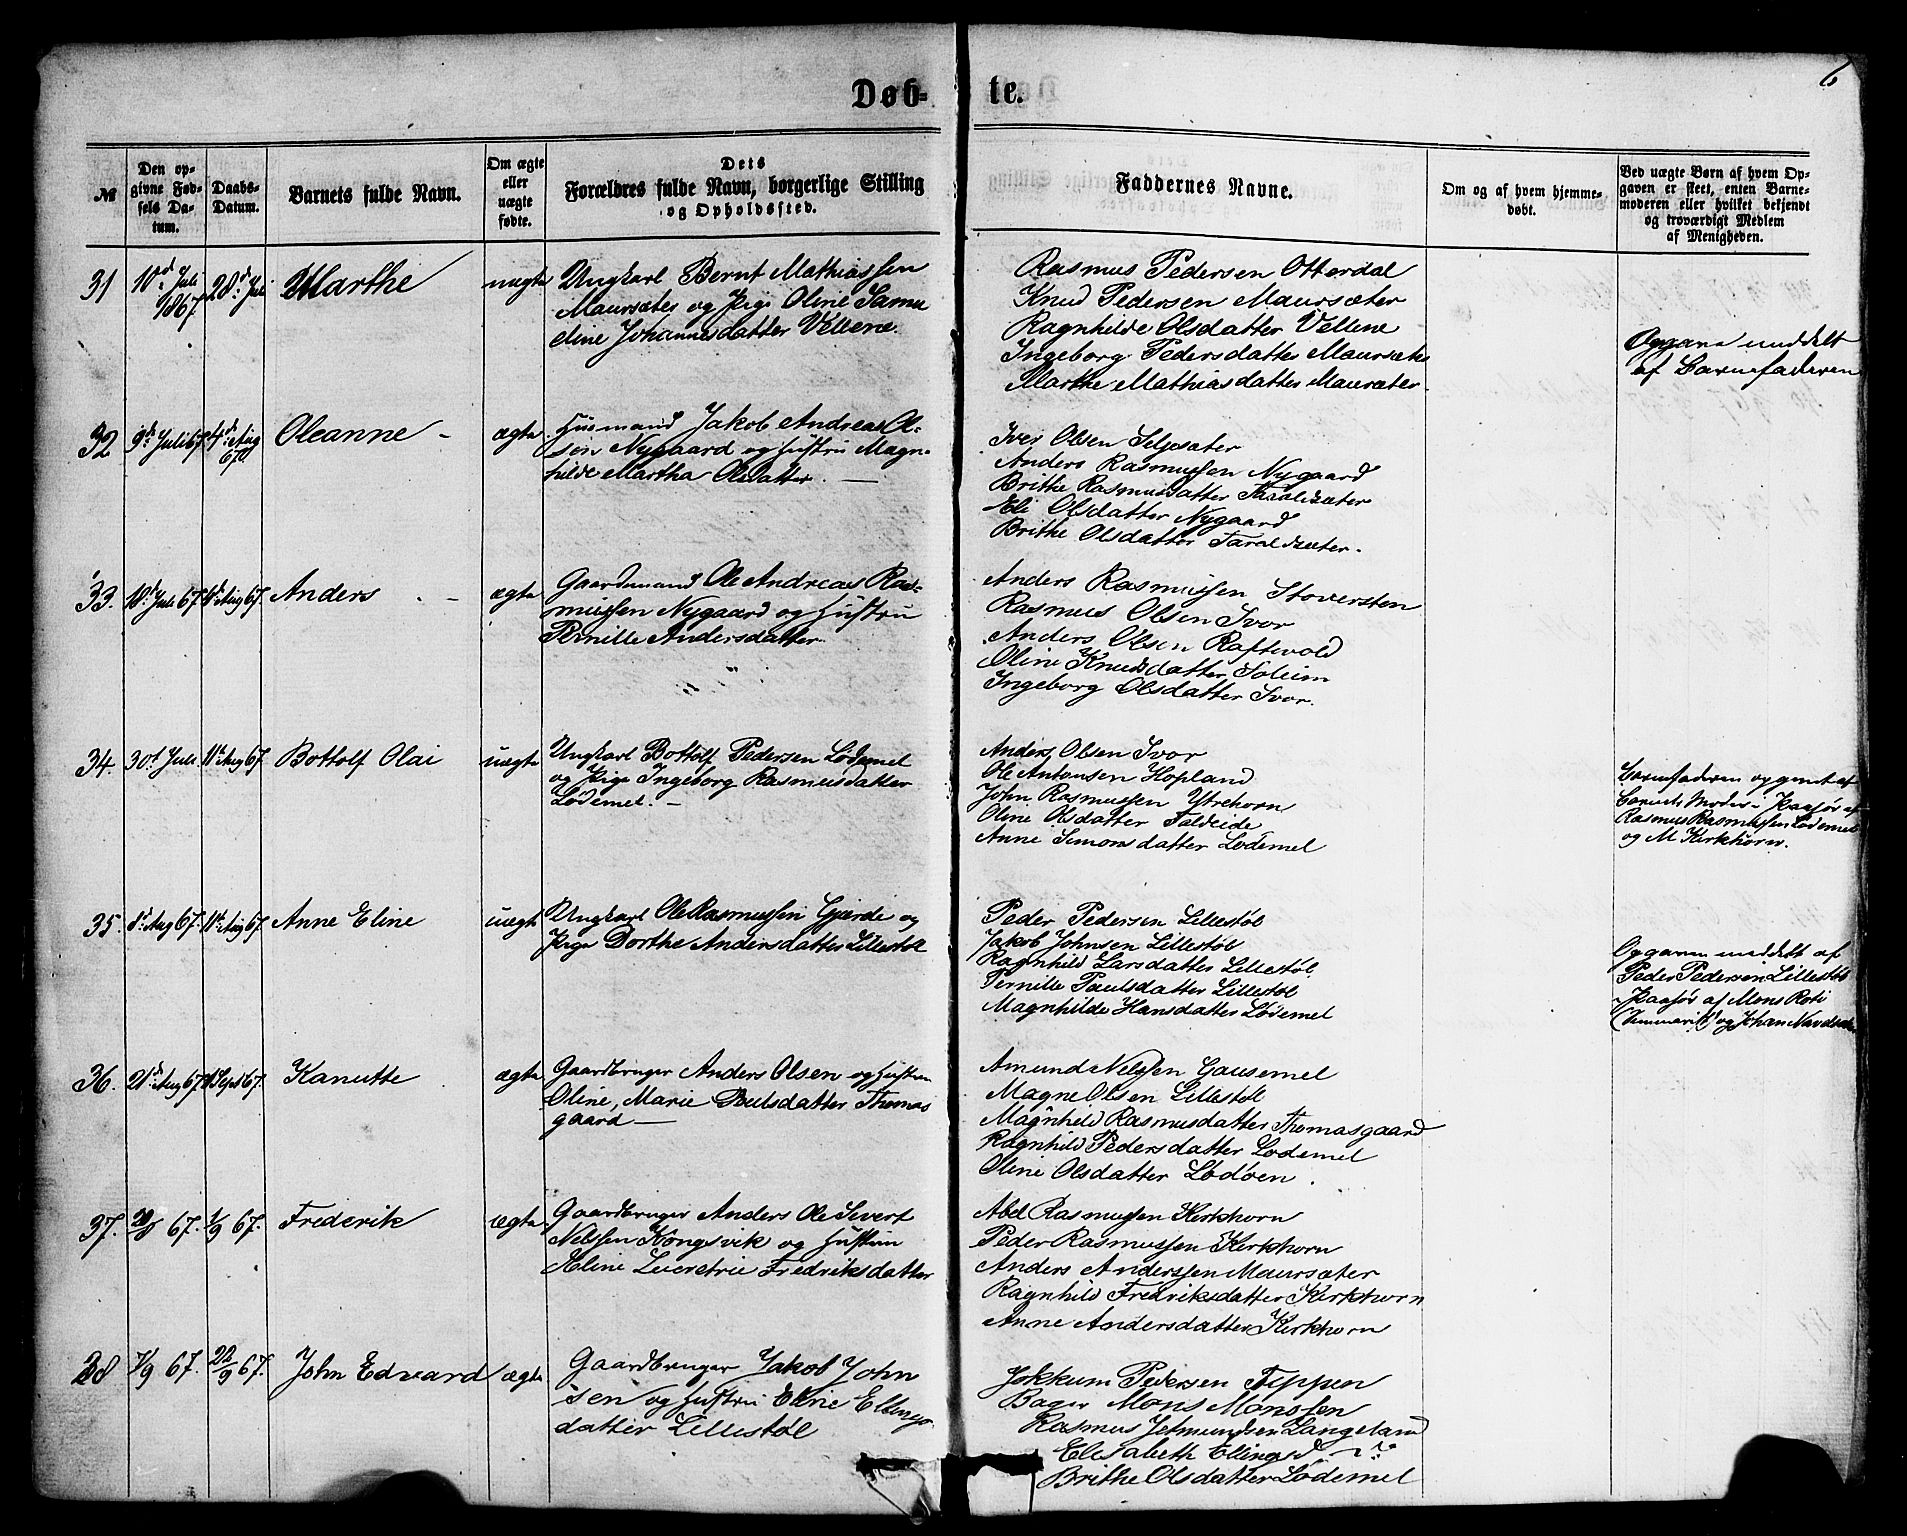 Døb-
te.
6
№
Den op-
givne Fød-
sels Da-
tum.
Daabs-
Datum.
Barnets fulde Navn.
Om ægte
eller
uægte
fødte.
Dets
Forældres fulde Navn, borgerlige Stilling
og Opholdssted.
Faddernes Navne.
Om og af hvem hjemme-
døbt.
Ved uægte Børn af hvem Op-
gaven er skeet, enten Barne-
moderen eller hvilket bekjendt
og troværdigt Medlem
af Menigheden.
31
10d. Juli
1867
28d. Juli
Marthe
uægte
Ungkarl Bernt Mathiassen
Maursæter og Pige Oline Samu
eline Johannesdatter Vellene.
Rasmus Pedersen Otterdal
Knud Pedersen Maursæter
Ragnhilde Olsdatter Vellene
Ingeborg Pedersdatter Maursæter
Marthe Mathiasdatter Maursæter.
Opgave meddelt
af Barnefaderen
32
9d. Juli 67.
4d. Aug
67.
Oleanne -
ægte
Husmand Jakob Andreas Ol-
sen Nygaard og Hustru Magn-
hilde Martha Olsdatter. —
Iver Olsen Seljesæter
Anders Rasmussen Nygaard
Brithe Rasmusdatter Taraldsæter
Eli Olsdatter Nygaard
Brithe Olsdatter Taraldsæter.
33.
18d. Juli 67.
4d. Aug 67.
Anders . -
ægte
Gaardmand Ole Andreas Ras-
mussen Nygaard og Hustru
Pernille Andersdatter.
Anders Rasmussen Stoversten
Rasmus Olsen Ivor
Anders Olsen Raftevold
Oline Knudsdatter Soleim
Ingeborg Olsdatter Ivor.
34.
30d Juli.
11d. Aug 67.
Bottolf Olai
uægte
Ungkarl Bottolf Pedersen Lødemel
og Pige Ingeborg Rasmusdatter
Lødemel. —
Anders Olsen Ivor
Ole Antonsen Hopland
John Rasmussen Ytrehorn
Oline Olsdatter Faldeide
Anne Simonsdatter Lødemel
Barnefaderen opgivet af
Barnets Moder i Paahør af
Rasmus Rasmussen Lødemel
og M Kirkhorn.
35.
8d. Aug 67.
11d. Aug 67.
Anne Eline
uægte
Ungkarl Ole Rasmussen Gjærde og
Pige Dorthe Andersdatter Lillestøl
Peder Pedersen Lillestøl
Jakob Johnsen Lillestøl
Ragnhild Larsdatter Lillestøl.
Pernille Paulsdatter Lillestøl
Magnhilde Hansdatter Lødemel
Opgaven meddelt af
Peder Pedersen Lillestøl
i Paahør af Mons Roti
(Seminarist) og Johan
36.
21d. Aug 67.
1d Sept 67.
Kanutte
ægte
Gaardbruger Anders Olsen og Hustru
Oline Marie Poulsdatter Thomas
gaard —
Amund Nelssen Gausemel
Magne Olsen Lillestøl
Magnhild Rasmusdatter Thomasgaard
Ragnhild Pedersdatter Lødemel
Oline Olsdatter Lødøen .
37.
20/8 67.
1/9 67.
Frederik
ægte
Gaardbruger Anders Ole Sivert
Nelssen Kongsvik og Hustru
Oline Fredriksdatter
Abel Rasmussen Kirkhorn
Peder Rasmussen Kirkhorn
Anders Anderssen Maursæter
Ragnhild Fredriksdatter Kirkhorn
Anne Andersdatter Kirkhorn
38
7/9 67.
22/9 67.
John Edvard
ægte
Gaardbruger Jakob John
sen og Hustru Eline Ellings
datter Lillestøl
Jokkum Pedersen Tippen
Bager Mons Monssen
Rasmus Jetmundsen Langeland
Elisabeth Ellingsd.
Brithe Olsdatter Lødemel